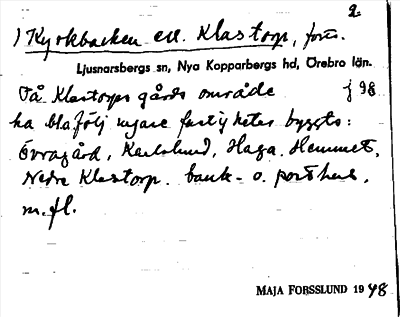 2.
) Kyrkbacken ell. Klastorp, forts.
Ljusnarsbergs sn, Nya Kopparbergs hd, Örebro län.
På Klastorps gårds område f 98
ha bl a följ nyare fastigheter byggts:
Övragård, Karlslund, Haga, Hemmet,
Nedre Klastorp, bank- o. posthus,
m.fl.
MAJA FORSSLUND 1948